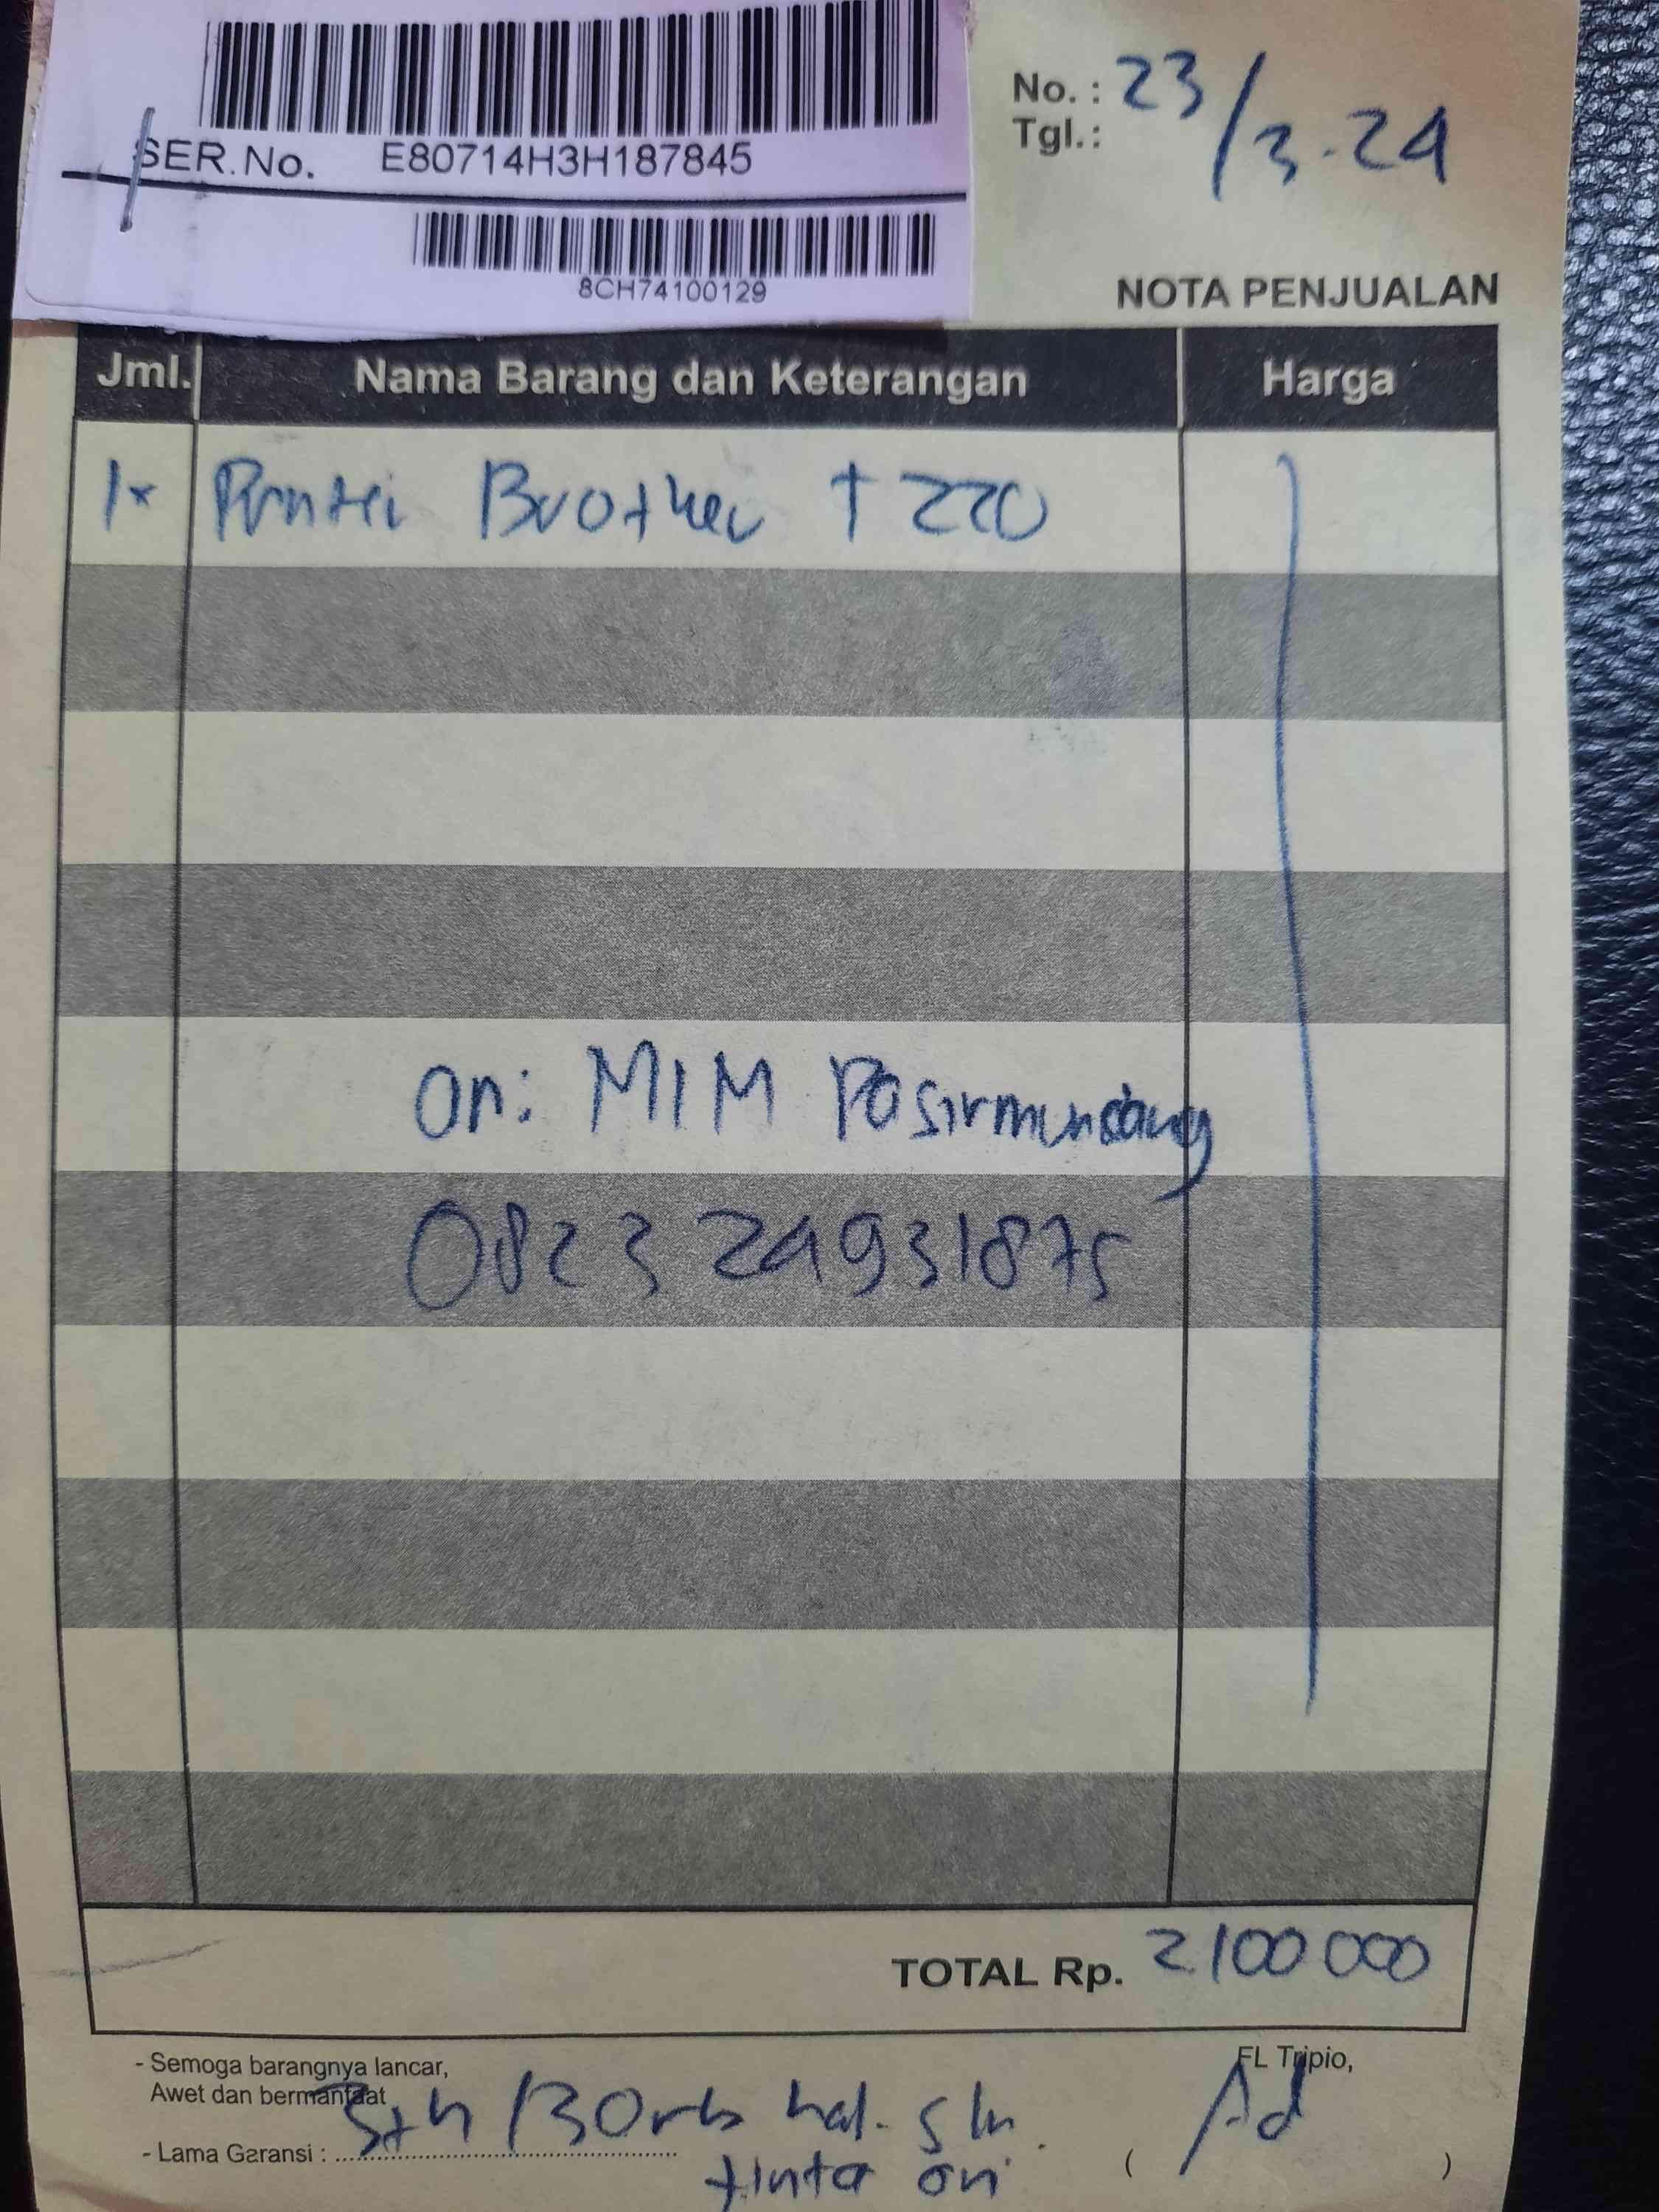 SER.No. E80714H3H187845
8CH74100129
No. : 23/3-24
Tgl.:
NOTA PENJUALAN
Jml. Nama Barang dan Keterangan Harga
1x Printer Brother T220
an: MIM Pasirmuncang
0823 24931875
TOTAL Rp. 2100 000
- Semoga barangnya lancar,
Awet dan bermanfaat
FL Tripio,
- Lama Garansi : 3th / 30rb hal.
tinta ori
( Ad )